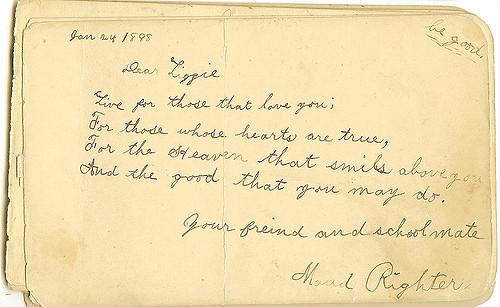 Jan 24 1898
be good.
Dear Lizzie
Live for those that love you;
For those whose hearts are true,
For the Heaven that smils above you
And the good that you may do.
Your freind and schoolmate
Maud Righter